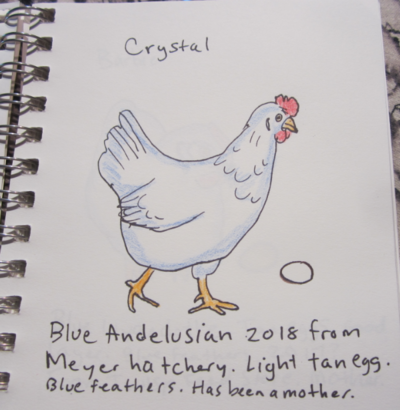 Crystal
Blue Andelusian 2018 from
Meyer hatchery. Light tan egg.
Blue feathers. Has been a mother.